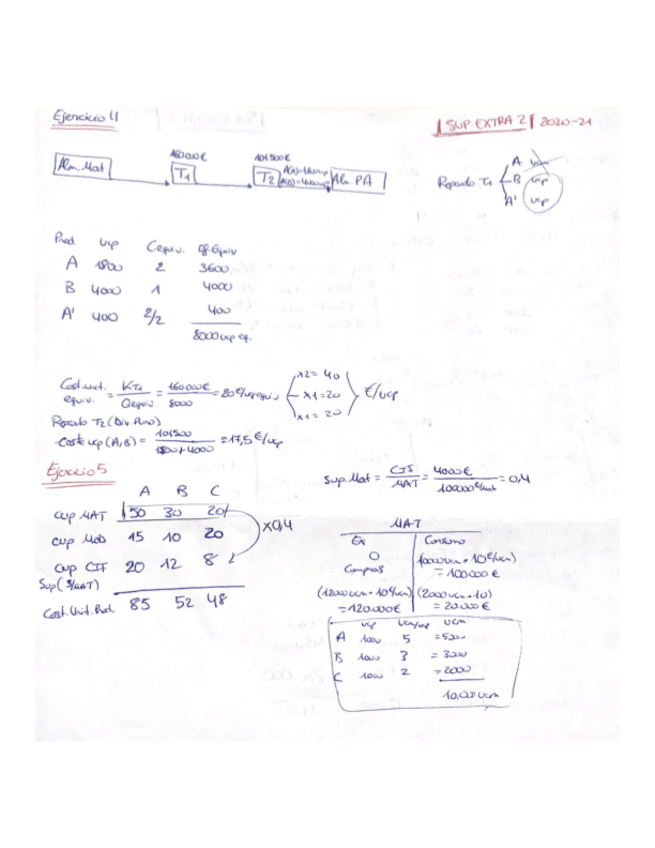 Ejercicio 4
SUP EXTRA 2 2020-21
160000€ 101500€
Alm. Mat T1 T2 Alm. PA
Reparto T1 A
B ucp
A' ucp
Prod. ucp Cequiv. Q equiv
A 1800 2 3600
B 4000 1 4000
A' 400 2/2 400
8000 ucp eq.
Cost. unit. equiv. = KT1 / Qequiv = 160000€ / 8000 = 20 €/ucp equiv x2 = 40
x1 = 20 €/ucp
x1 = 20
Reparto T2 (Div. Puro)
Coste ucp (A, B) = 101500 / 1800 + 4000 = 17,5 €/ucp
Ejercicio 5
Sup. Mat = CIF / MAT = 4000€ / 100000 = 0,4
A B C
CUP MAT 50 30 20
x0,4
CUP MOD 15 10 20
CUP CIF 20 12 8
Sup (s/MAT)
Cost. Unit. Prod. 85 52 48
MAT
Ei Consumo
0 (10000 ucm · 10€/ucm)
Compras = 100.000€
(12000 ucm · 10€/ucm) (2000 ucm · 10)
= 120.000€ = 20.000€
ucp ucm/ucp ucm
A 1000 5 = 5000
B 1000 3 = 3000
C 1000 2 = 2000
10.000 ucm